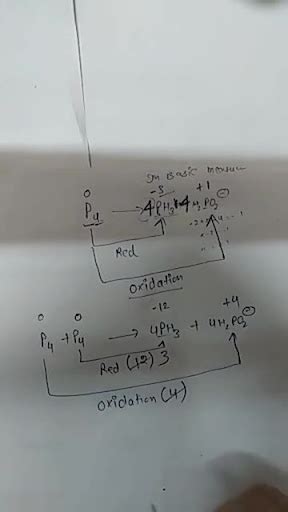 In Basic medium
0 -3 +1
P4 → 4PH3 + 4H2PO2⊖
Red
oxidation
0 0 -12 +4
P4 + P4 → 4PH3 + 4H2PO2⊖
Red (12) 3
oxidation (4)